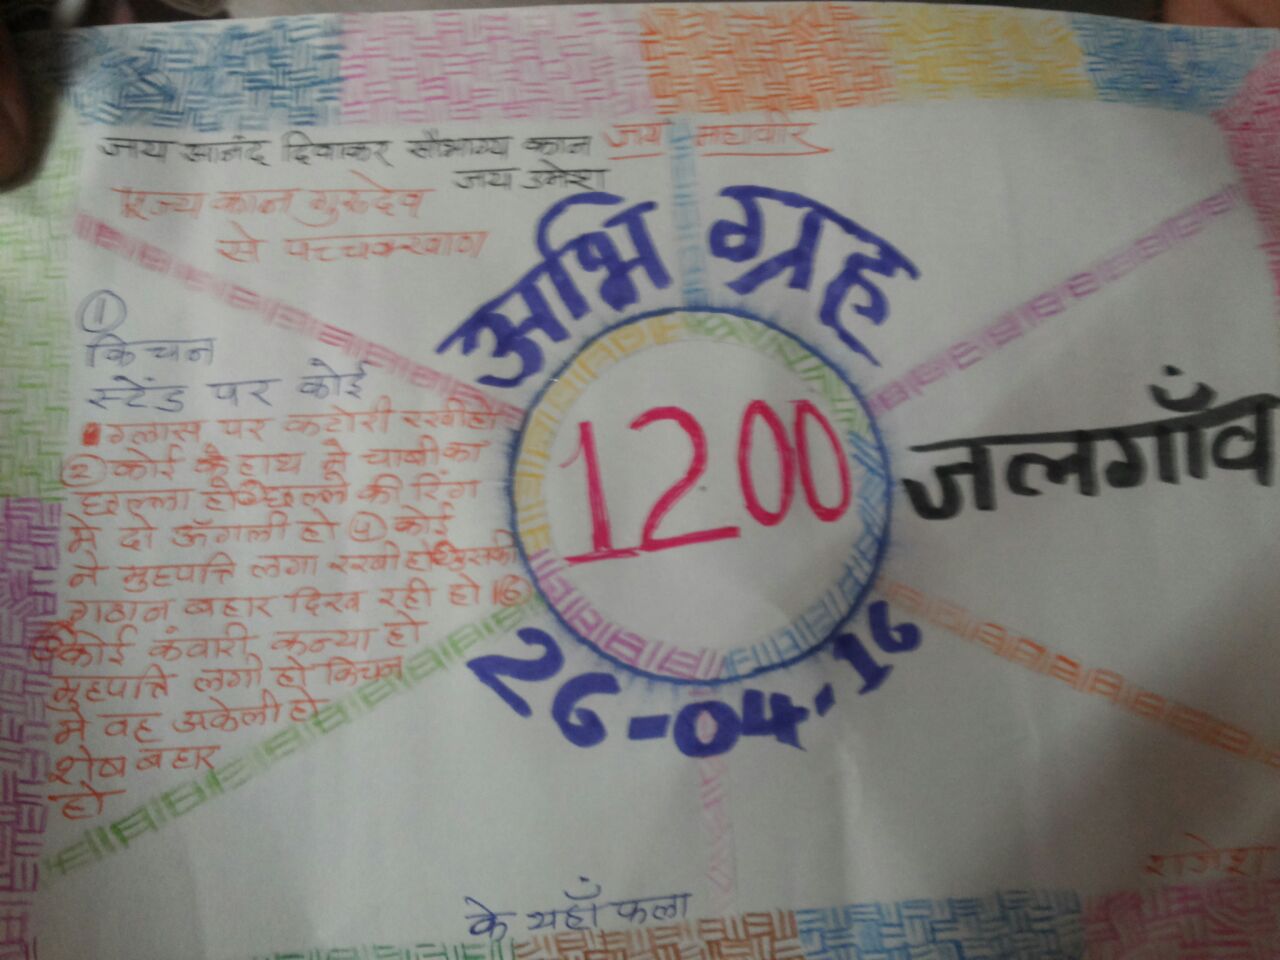 जय आनंद दिवाकर सौभाग्य कान जय महावीर
जय उमेश
पूज्य कान गुरुदेव
से पच्चक्खाण
अभि ग्रह
1200
26-04-16
जलगाँव
①
किचन
स्टेंड पर कोई
ग्लास पर कटोरी रखी हो
② कोई के हाथ मे चाबी का
छल्ला हो छल्ले की रिंग
मे दो ऊँगली हो ④ कोई
ने मुहपत्ति लगा रखी हो उसकी
गठान बहार दिख रही हो ⑥
कोई कंवारी कन्या हो
मुहपत्ति लगी हो किचन
मे वह अकेली हो
शेष बहार
हो
के यहाँ फला